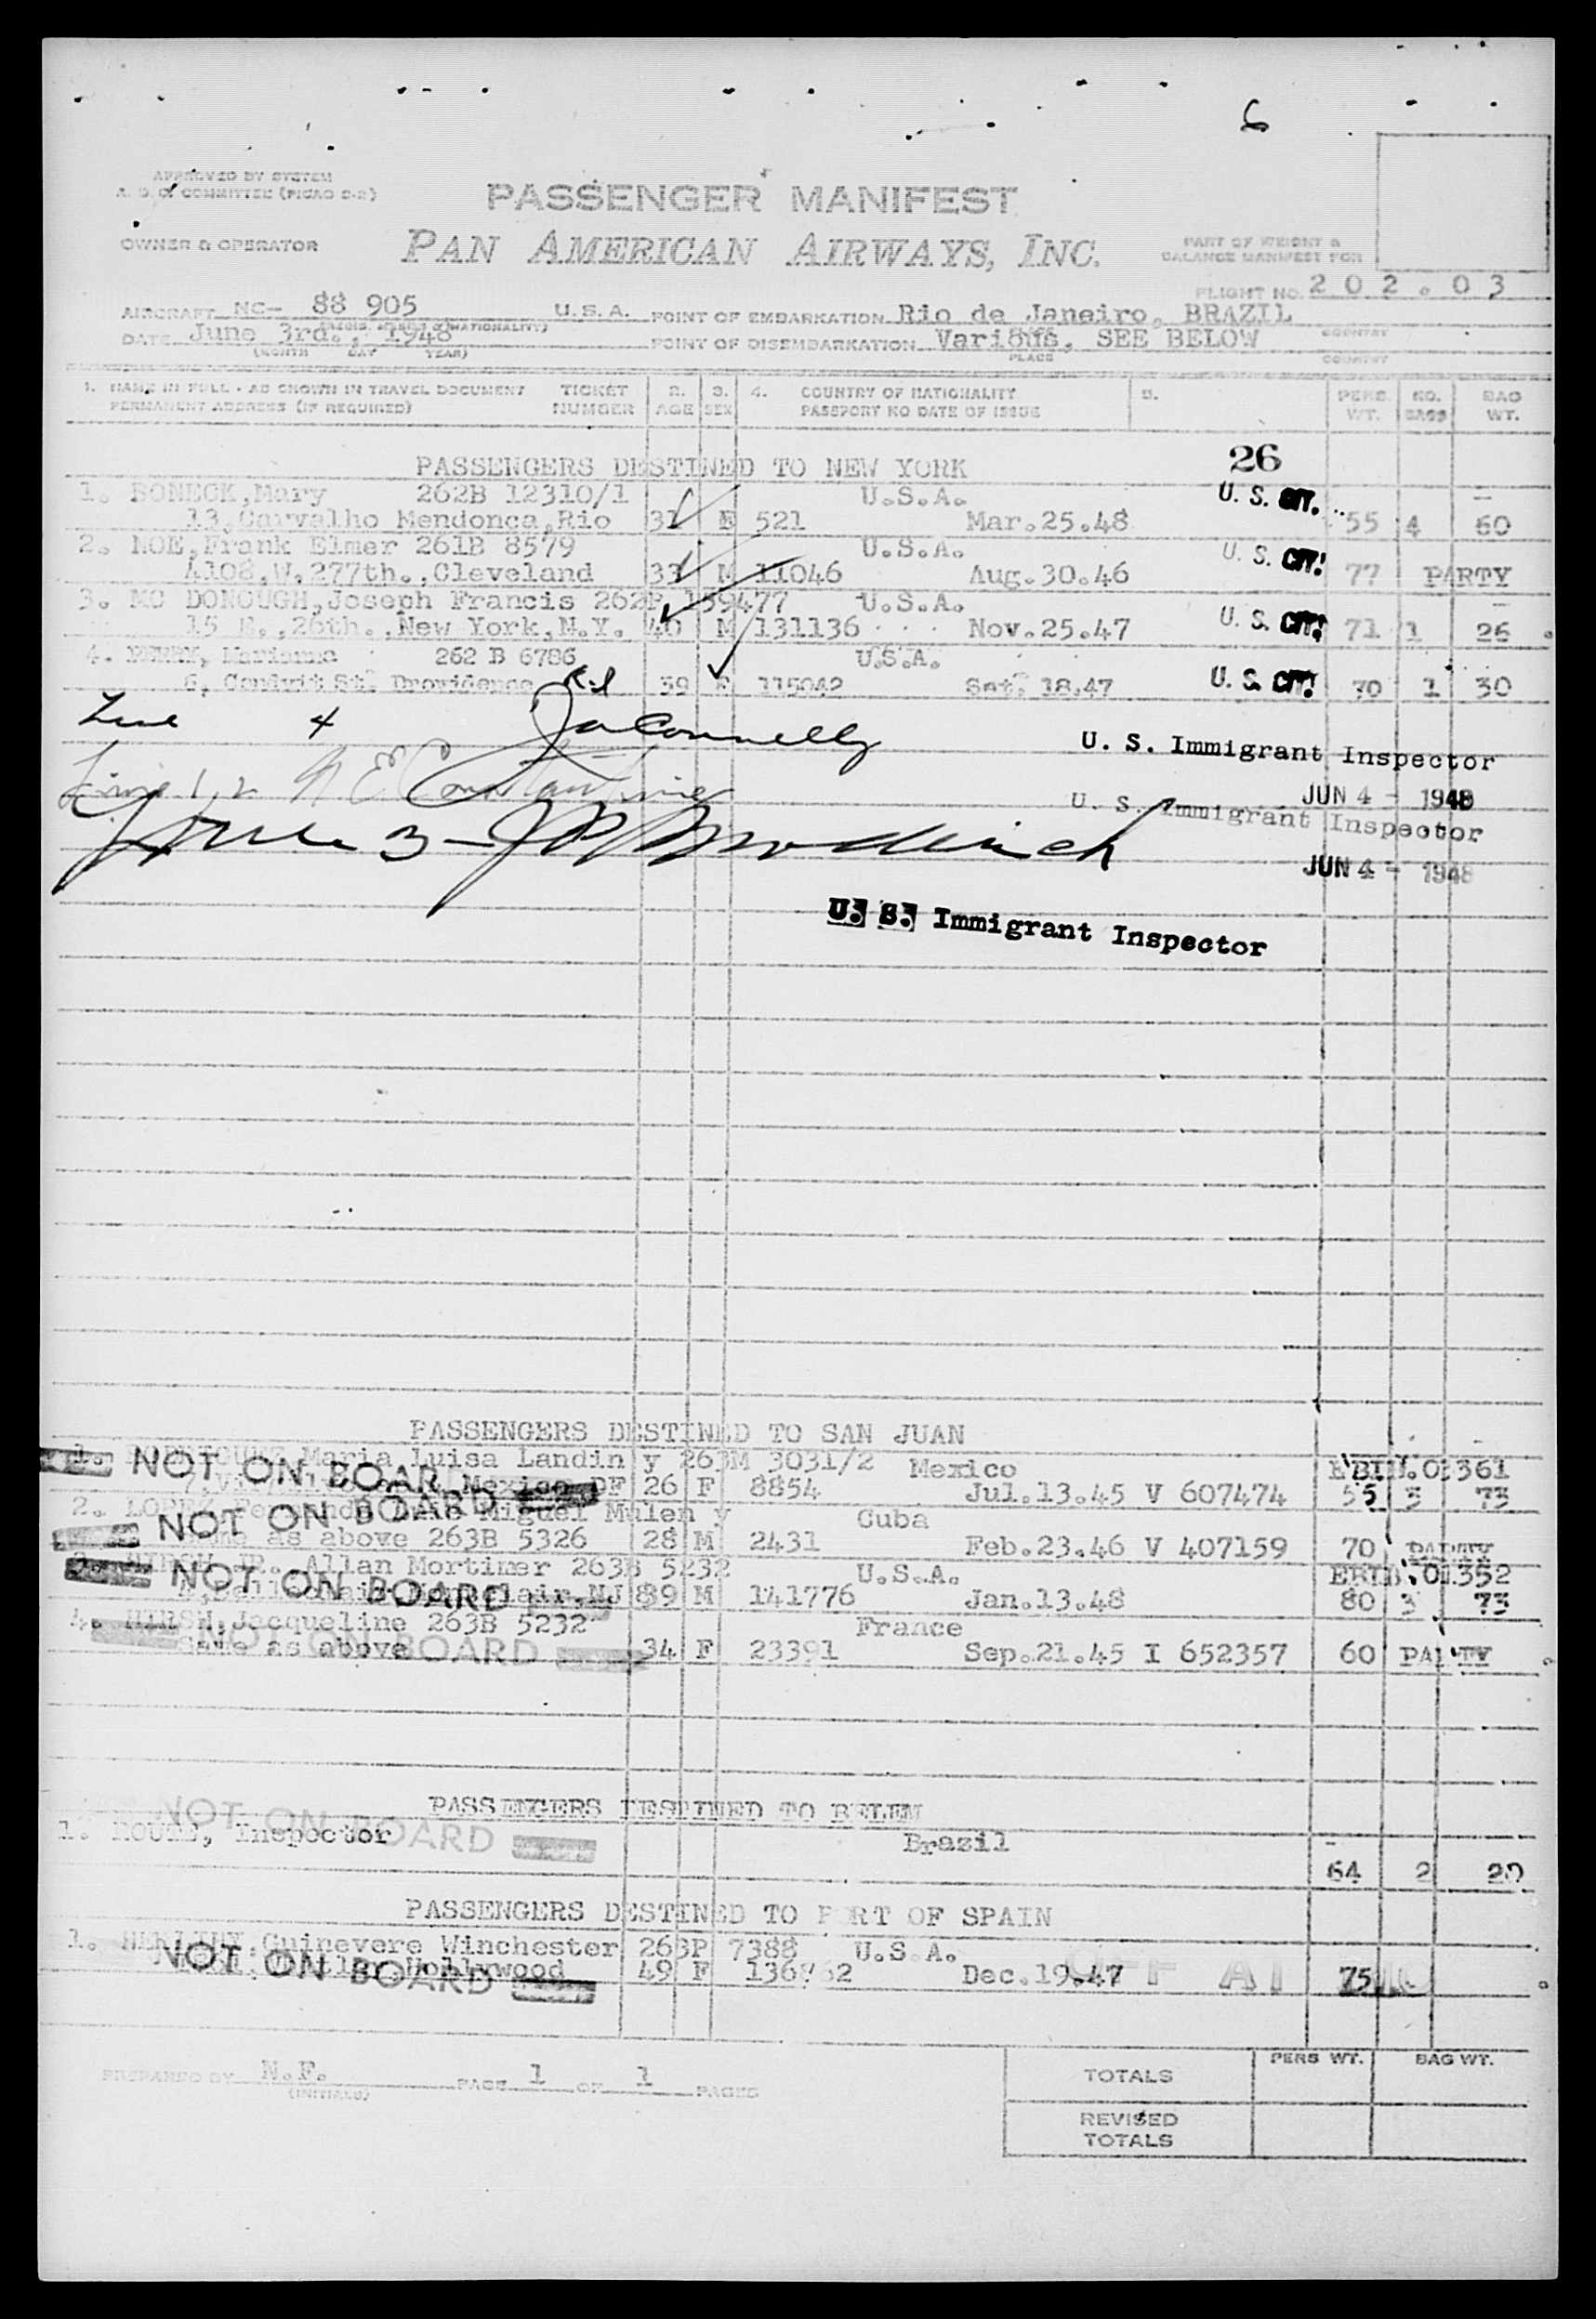 6
APPROVED BY SYSTEM
A. D. C. COMMITTEE (PICAO D-2)
PASSENGER MANIFEST
OWNER & OPERATOR PAN AMERICAN AIRWAYS, INC.
PART OF WEIGHT &
BALANCE MANIFEST FOR
FLIGHT NO. 202.03
AIRCRAFT NC- 88 905 U.S.A. POINT OF EMBARKATION Rio de Janeiro, BRAZIL
DATE June 3rd., 1948 POINT OF DISEMBARKATION Various, SEE BELOW
(MONTH DAY YEAR) PLACE COUNTRY
1. NAME IN FULL - AS SHOWN IN TRAVEL DOCUMENT TICKET 2. 3. 4. COUNTRY OF NATIONALITY 5. PERS. NO. BAG
PERMANENT ADDRESS (IF REQUIRED) NUMBER AGE SEX PASSPORT NO DATE OF ISSUE WT. BAGS WT.
PASSENGERS DESTINED TO NEW YORK 26
1. BONECK, Mary 262B 12310/1 U.S.A. U. S. CIT.
13, Carvalho Mendonca, Rio F 521 Mar.25.48 55 4 60
2. NOE, Frank Elmer 261B 8579 U.S.A. U. S. CIT.
4108, W. 277th., Cleveland 33 M 11046 Aug.30.46 77 PARTY
3. MC DONOUGH, Joseph Francis 262B 159477 U.S.A.
15 E., 26th., New York, N.Y. 40 M 131136 Nov.25.47 U. S. CIT. 71 1 26
4. PERRY, Marianna 262 B 6786 U.S.A.
6, St. Providence R.I 39 F 115042 Set. 18.47 U. S. CIT. 70 1 30
Line 4 Connelly U. S. Immigrant Inspector
Line 1, 2 JUN 4 - 1948
U. S. Immigrant Inspector
Line 3 - JUN 4 - 1948
U. S. Immigrant Inspector
PASSENGERS DESTINED TO SAN JUAN
1. Maria Luisa Landin y 263M 3031/2 Mexico 361
NOT ON BOARD Mexico DF 26 F 8854 Jul.13.45 V 607474 55 3 73
2. LOPEZ Miguel Mulen y Cuba
NOT ON BOARD
Same as above 263B 5326 28 M 2431 Feb.23.46 V 407159 70 PARTY
3. HIRSH JR. Allan Mortimer 263B 5232 U.S.A. 352
NOT ON BOARD NJ 39 M 141776 Jan.13.48 80 3 73
4. HIRSH, Jacqueline 263B 5232 France
NOT ON BOARD
Same as above 34 F 23391 Sep.21.45 I 652357 60 PARTY
PASSENGERS DESTINED TO BELEM
NOT ON BOARD
1. Inspector Brazil
64 2 20
PASSENGERS DESTINED TO PORT OF SPAIN
1. Guinevere Winchester 263P 7388 U.S.A.
NOT ON BOARD Hollywood 49 F Dec.19.47 75
PREPARED BY N.F. PAGE 1 OF 1 PAGES
(INITIALS)
PERS WT. BAG WT.
TOTALS
REVISED
TOTALS